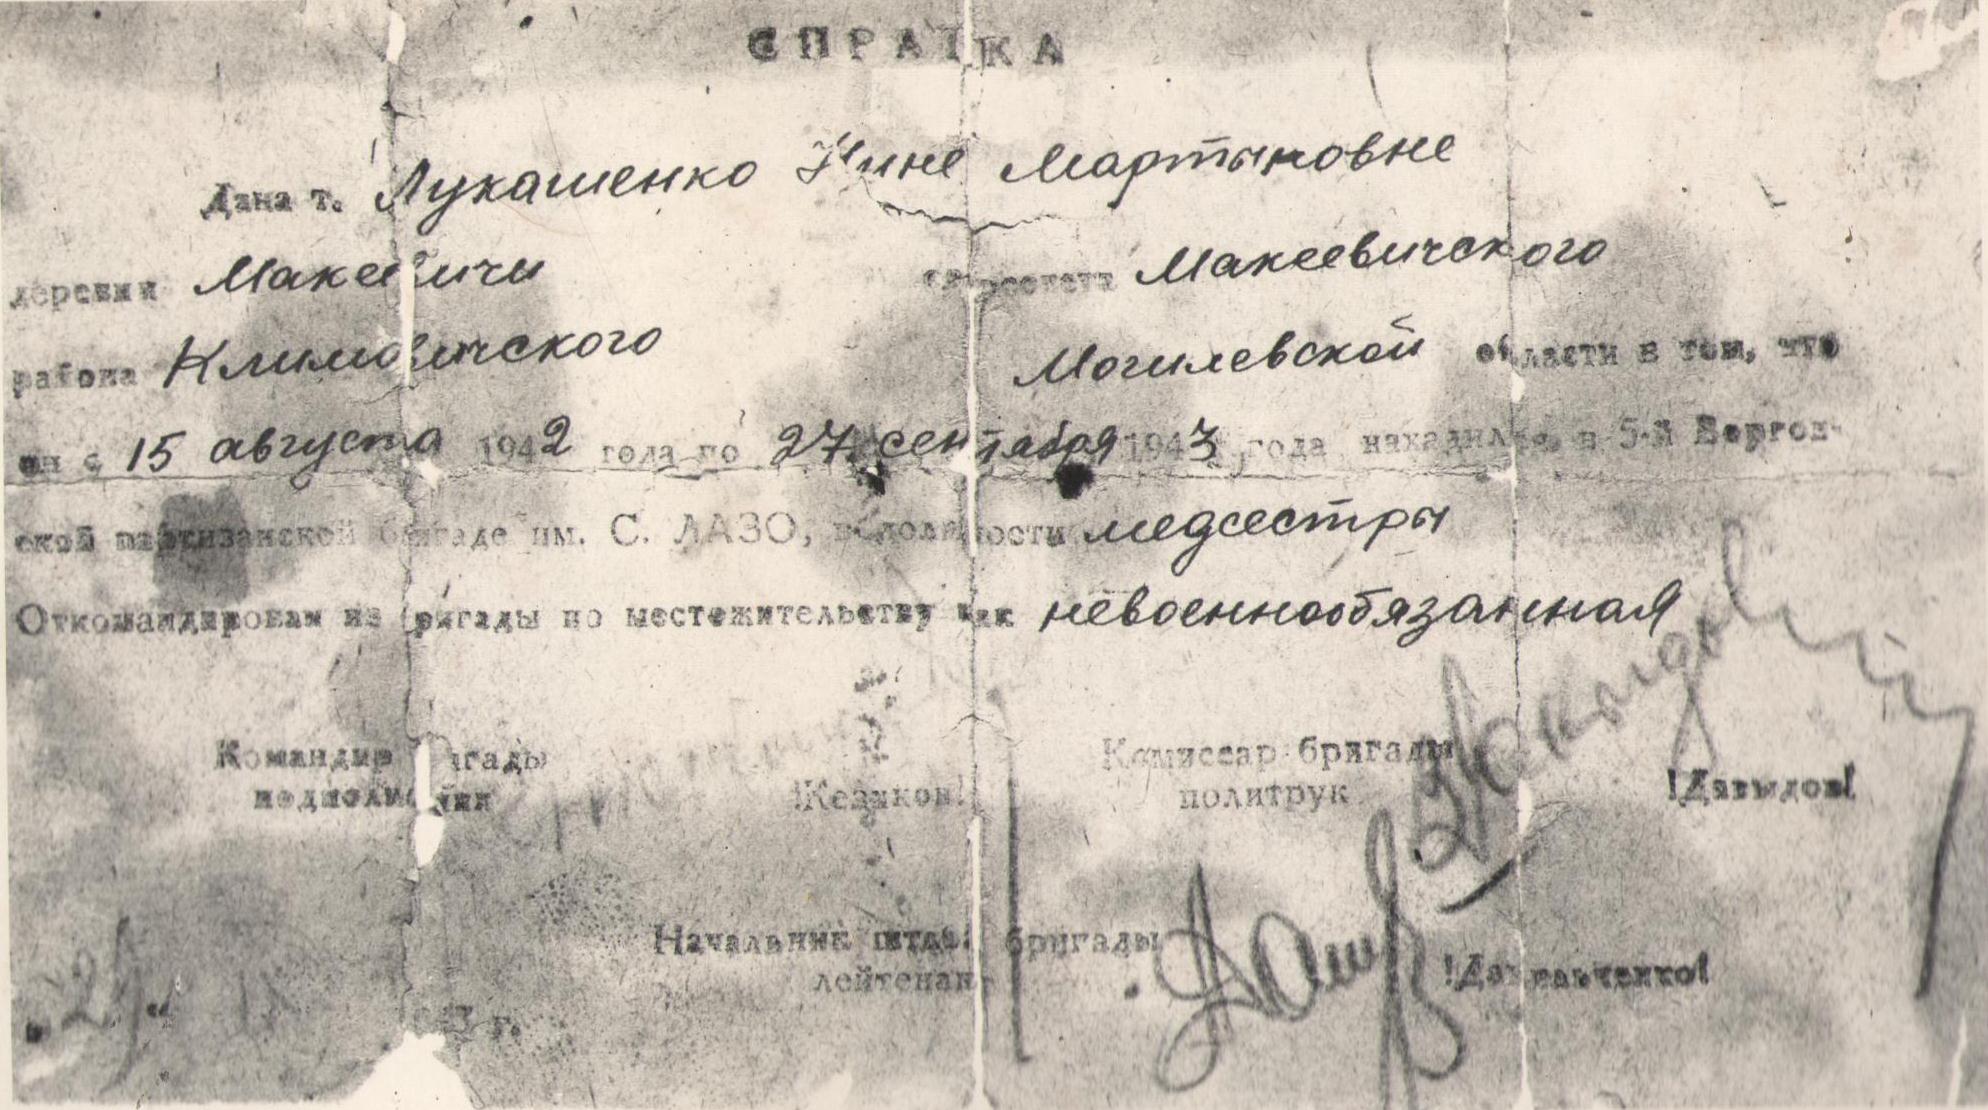 СПРАВКА
Дана т. Лукашенко Нине Мартыновне
деревни Макеевичи сельсовета Макеевичского
района Климовичского Могилевской области в том, что
он с 15 августа 1942 года по 27 сентября 1943 года находился в 5-й Воргов-
ской партизанской бригаде им. С. ЛАЗО, в должности медсестры
Откомандирован из бригады по местежительству как невоеннообязанная
Командир бригады Комиссар бригады
политрук !Давыдов!
Начальник штаба бригады
лейтенант
"29" 11 г.